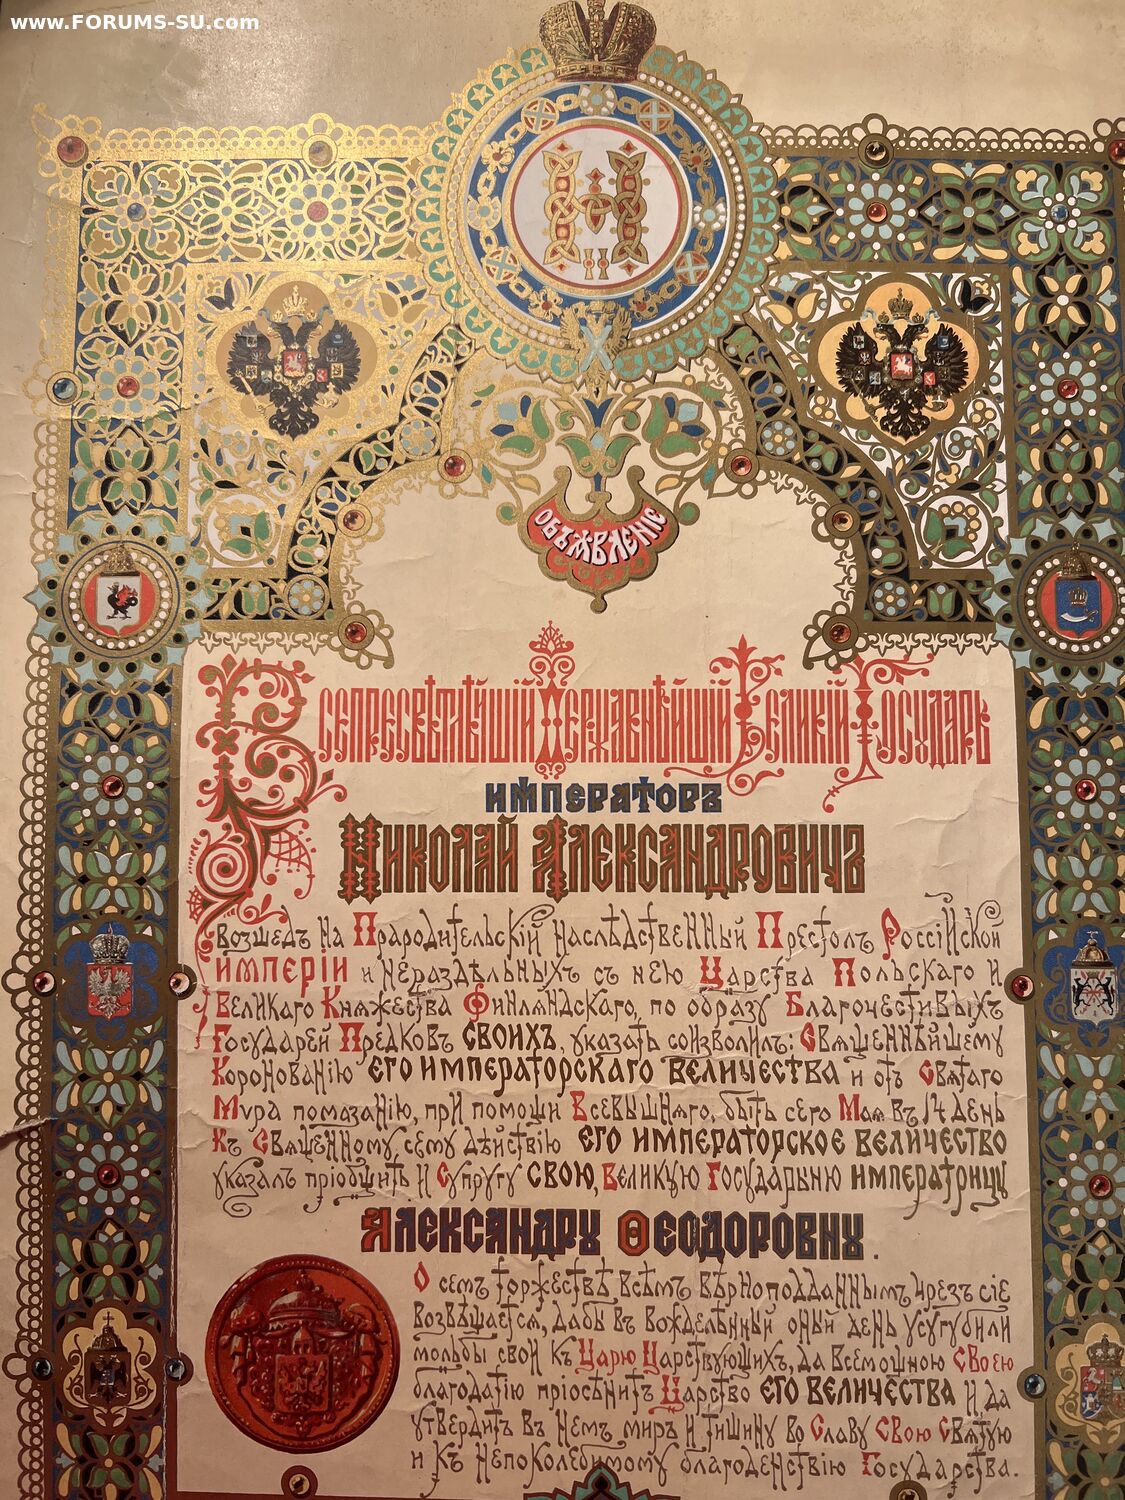 www.FORUMS-SU.com
ОБЪЯВЛЕНІЕ
ВСЕПРЕСВѢТЛѢЙШІЙ ДЕРЖАВНѢЙШІЙ ВЕЛИКІЙ ГОСУДАРЬ
ИМПЕРАТОРЪ
НИКОЛАЙ АЛЕКСАНДРОВИЧЪ
возшедъ на Прародительскій наслѣдственный Престолъ Россійской
ИМПЕРІИ и нераздѣльныхъ съ нею Царства Польскаго и
Великаго Княжества Финляндскаго, по образу Благочестивыхъ
Государей Предковъ СВОИХЪ, указать соизволилъ: Священнѣйшему
Коронованію ЕГО ИМПЕРАТОРСКАГО ВЕЛИЧЕСТВА и отъ Святаго
Мѵра помазанію, при помощи Всевышняго, быть сего Мая въ 14 день
Къ Священному сему дѣйствію ЕГО ИМПЕРАТОРСКОЕ ВЕЛИЧЕСТВО
указалъ пріобщить и Супругу СВОЮ, Великую Государыню ИМПЕРАТРИЦУ
АЛЕКСАНДРУ ѲЕОДОРОВНУ.
О семъ торжествѣ всѣмъ вѣрноподданнымъ чрезъ сіе
возвѣщается, дабы въ вожделѣнный оный день усугубили
мольбы свои къ Царю Царствующихъ, да всемощною Своею
благодатію пріосѣнитъ Царство ЕГО ВЕЛИЧЕСТВА и да
утвердитъ въ немъ миръ и тишину во Славу Свою Святую
и къ непоколебимому благоденствію Государства.